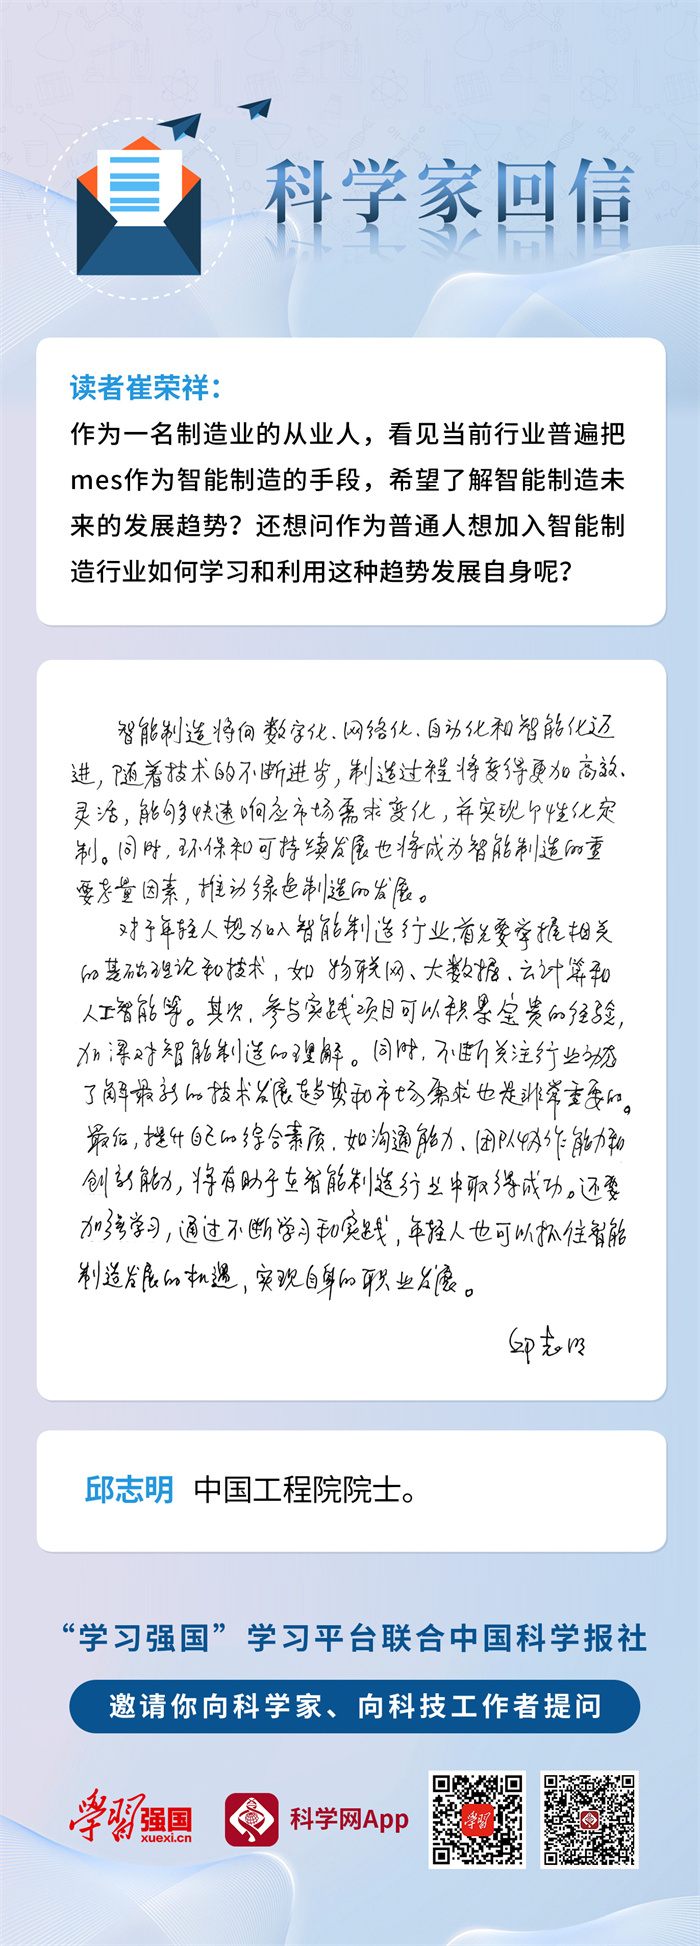 科学家回信
读者崔荣祥：
作为一名制造业的从业人，看见当前行业普遍把
mes作为智能制造的手段，希望了解智能制造未
来的发展趋势？还想问作为普通人想加入智能制
造行业如何学习和利用这种趋势发展自身呢？
智能制造将向数字化、网络化、自动化和智能化迈
进，随着技术的不断进步，制造过程将变得更加高效、
灵活，能够快速响应市场需求变化，并实现个性化定
制。同时，环保和可持续发展也将成为智能制造的重
要考量因素，推动绿色制造的发展。
对于年轻人想加入智能制造行业，首先要掌握相关
的基础理论和技术，如物联网、大数据、云计算和
人工智能等。其次，参与实践项目可以积累宝贵的经验，
加深对智能制造的理解。同时，不断关注行业动态
了解最新的技术发展趋势和市场需求也是非常重要的。
最后，提升自己的综合素质，如沟通能力、团队协作能力和
创新能力，将有助于在智能制造行业中取得成功。还要
加强学习，通过不断学习和实践，年轻人也可以抓住智能
制造发展的机遇，实现自身的职业发展。
邱志明
邱志明 中国工程院院士。
“学习强国”学习平台联合中国科学报社
邀请你向科学家、向科技工作者提问
学习强国
xuexi.cn
科学网App
学习